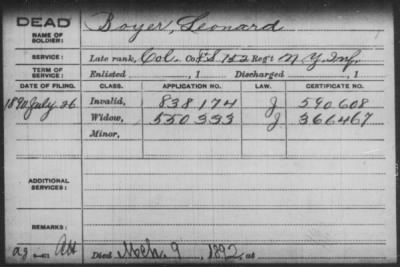 DEAD
NAME OF SOLDIER: Boyer, Leonard
SERVICE: Late rank, Col. Co. F&S 152 Reg't N Y Inf.
TERM OF SERVICE: Enlisted , 1 Discharged , 1
DATE OF FILING. CLASS. APPLICATION NO. LAW. CERTIFICATE NO.
1890 July 26 Invalid, 838174 J 590608
Widow, 550333 J 366467
Minor,
ADDITIONAL SERVICES:
REMARKS:
Died Mch. 9, 1892, at